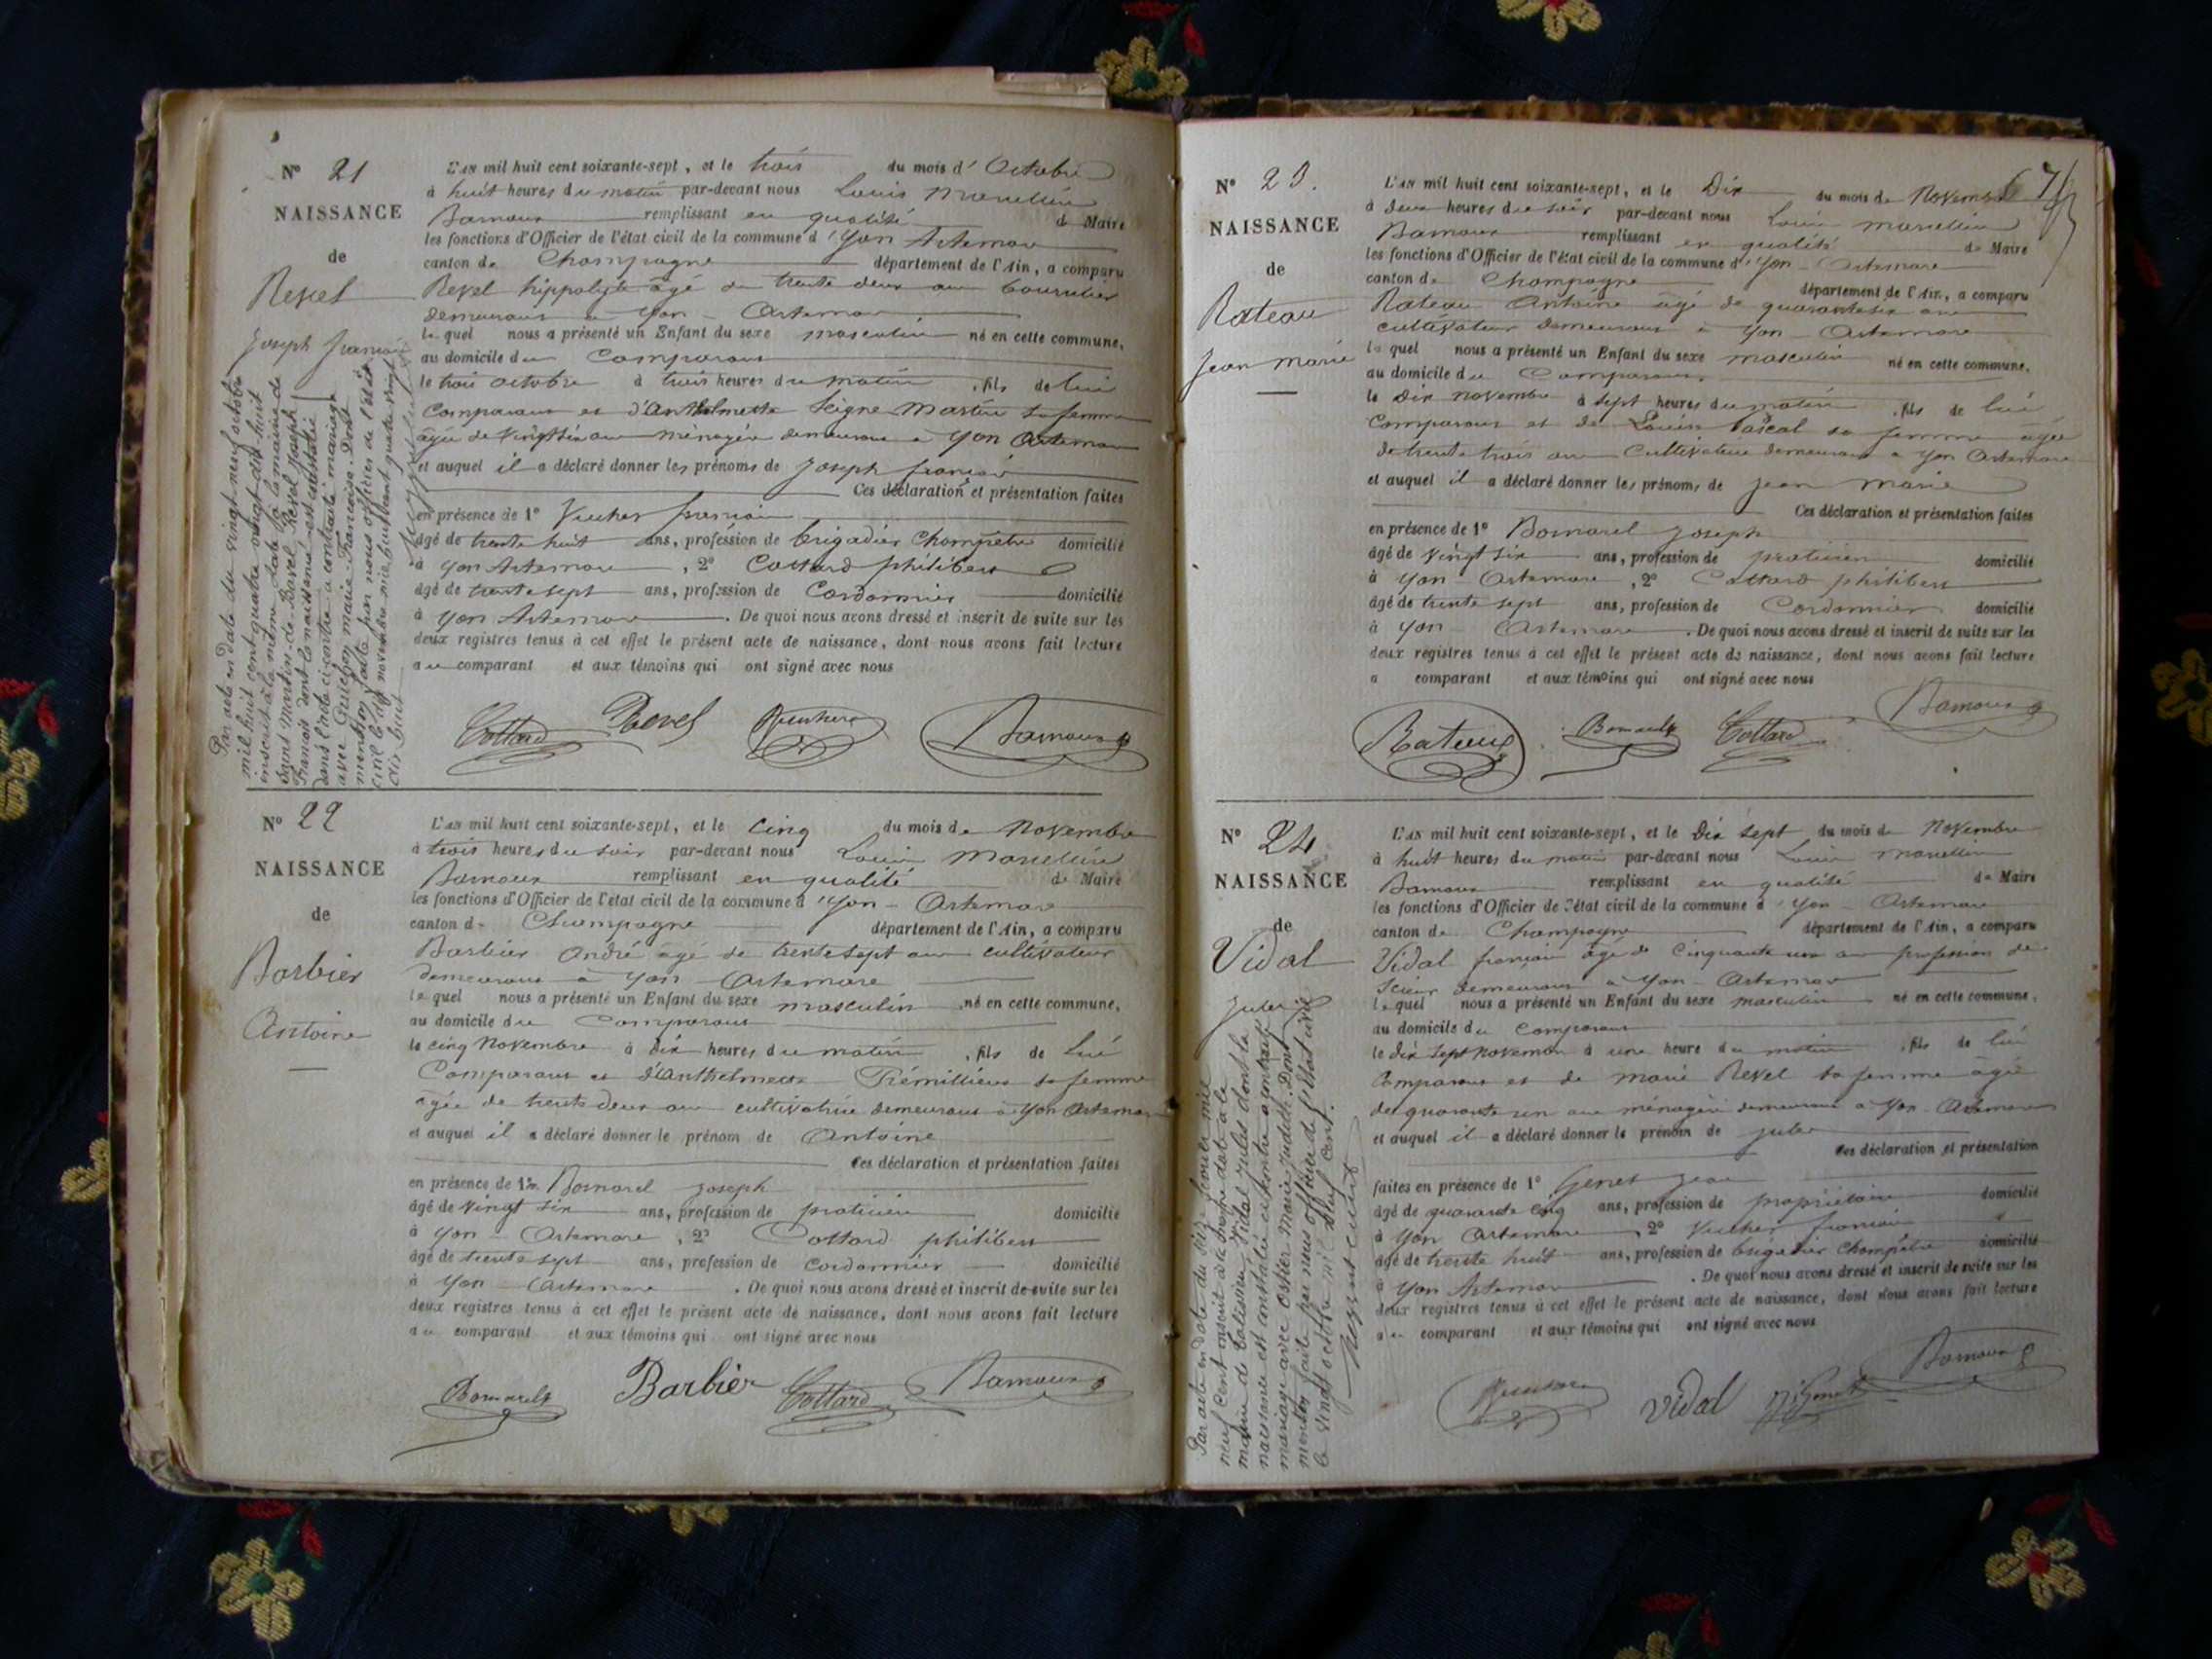 N° 21
NAISSANCE
de
Revel
Joseph françois
L'AN mil huit cent soixante-sept, et le trois du mois d'Octobre
à huit heures du matin par-devant nous Louis Marcellin
remplissant en qualité de Maire
les fonctions d'Officier de l'état civil de la commune d'Yon Artemare
canton de Champagne département de l'Ain, a comparu
Revel hippolyte âgé de trente deux ans bourrelier
demeurant à Yon - Artemare
lequel nous a présenté un Enfant du sexe masculin né en cette commune,
au domicile du Comparant
le trois octobre à trois heures du matin, fils de lui
Comparant et d'Anthelmette Seigne Martin sa femme
âgée de vingt six ans ménagère demeurant à Yon Artemare
et auquel il a déclaré donner les prénoms de Joseph françois
Ces déclaration et présentation faites
en présence de 1° Vucher françois
âgé de trente huit ans, profession de brigadier Champêtre domicilié
à Yon Artemare, 2° Cottard philibert
âgé de trente sept ans, profession de Cordonnier domicilié
à Yon Artemare. De quoi nous avons dressé et inscrit de suite sur les
deux registres tenus à cet effet le présent acte de naissance, dont nous avons fait lecture
au comparant et aux témoins qui ont signé avec nous
Cottard Revel
Par acte en date du vingt-neuf octobre
mil huit cent quatre vingt-dix-huit
inscrit à la même date à la mairie de
Saint Martin-de-Bavel, Revel Joseph
François dont la naissance est constatée
dans l'acte ci-contre a contracté mariage
avec Guichon Marie-Françoise. Dont
mention faite par nous officier de l'état
civil le dix novembre mil huit cent quatre vingt
dix huit
N° 22
NAISSANCE
de
Barbier
Antoine
L'AN mil huit cent soixante-sept, et le cinq du mois de Novembre
à trois heures du soir par-devant nous Louis Marcellin
remplissant en qualité de Maire
les fonctions d'Officier de l'état civil de la commune d'Yon - Artemare
canton de Champagne département de l'Ain, a comparu
Barbier André âgé de trente sept ans cultivateur
demeurant à Yon - Artemare
lequel nous a présenté un Enfant du sexe masculin, né en cette commune,
au domicile du Comparant
le cinq Novembre à dix heures du matin, fils de lui
Comparant et d'Anthelmette Trémillieux sa femme
âgée de trente deux ans cultivatrice demeurant à Yon Artemare
et auquel il a déclaré donner le prénom de Antoine
Ces déclaration et présentation faites
en présence de 1° Bornarel Joseph
âgé de vingt six ans, profession de praticien domicilié
à Yon - Artemare, 2° Cottard philibert
âgé de trente sept ans, profession de cordonnier domicilié
à Yon - Artemare. De quoi nous avons dressé et inscrit de suite sur les
deux registres tenus à cet effet le présent acte de naissance, dont nous avons fait lecture
au comparant et aux témoins qui ont signé avec nous
Bornarel Barbier Cottard
67
N° 23.
NAISSANCE
de
Rateau
Jean Marie
L'AN mil huit cent soixante-sept, et le Dix du mois de Novembre
à deux heures du soir par-devant nous Louis Marcellin
remplissant en qualité de Maire
les fonctions d'Officier de l'état civil de la commune d'Yon - Artemare
canton de Champagne département de l'Ain, a comparu
Rateau Antoine âgé de quarante six ans
cultivateur demeurant à Yon - Artemare
lequel nous a présenté un Enfant du sexe masculin né en cette commune,
au domicile du Comparant
le Dix novembre à sept heures du matin, fils de lui
Comparant et de Louise Pascal sa femme âgée
de trente trois ans Cultivatrice demeurant à Yon Artemare
et auquel il a déclaré donner les prénoms de Jean Marie
Ces déclaration et présentation faites
en présence de 1° Bornarel Joseph
âgé de vingt six ans, profession de praticien domicilié
à Yon - Artemare, 2° Cottard philibert
âgé de trente sept ans, profession de Cordonnier domicilié
à Yon Artemare. De quoi nous avons dressé et inscrit de suite sur les
deux registres tenus à cet effet le présent acte de naissance, dont nous avons fait lecture
a comparant et aux témoins qui ont signé avec nous
Rateau Bornarel Cottard
N° 24
NAISSANCE
de
Vidal
Jules
L'AN mil huit cent soixante-sept, et le Dix sept du mois de Novembre
à huit heures du matin par-devant nous Louis Marcellin
remplissant en qualité de Maire
les fonctions d'Officier de l'état civil de la commune d'Yon - Artemare
canton de Champagne département de l'Ain, a comparu
Vidal françois âgé de cinquante un ans profession de
Scieur demeurant à Yon - Artemare
lequel nous a présenté un Enfant du sexe masculin né en cette commune,
au domicile du Comparant
le dix sept novembre à une heure du matin, fils de lui
Comparant et de Marie Revel sa femme âgée
de quarante un ans ménagère demeurant à Yon - Artemare
et auquel il a déclaré donner le prénom de Jules
Ces déclaration et présentation
faites en présence de 1° Genet Jean
âgé de quarante cinq ans, profession de propriétaire domicilié
à Yon Artemare, 2° Vucher françois
âgé de trente huit ans, profession de brigadier Champêtre domicilié
à Yon Artemare. De quoi nous avons dressé et inscrit de suite sur les
deux registres tenus à cet effet le présent acte de naissance, dont nous avons fait lecture
au comparant et aux témoins qui ont signé avec nous
Vidal
Par acte en date du seize février mil
neuf cent inscrit à la même date à la
mairie de Talissieu, Vidal Jules dont la
naissance est constatée ci-contre a contracté
mariage avec Ostier Marie Judith. Dont
mention faite par nous officier de l'état civil
le vingt octobre mil neuf cent.